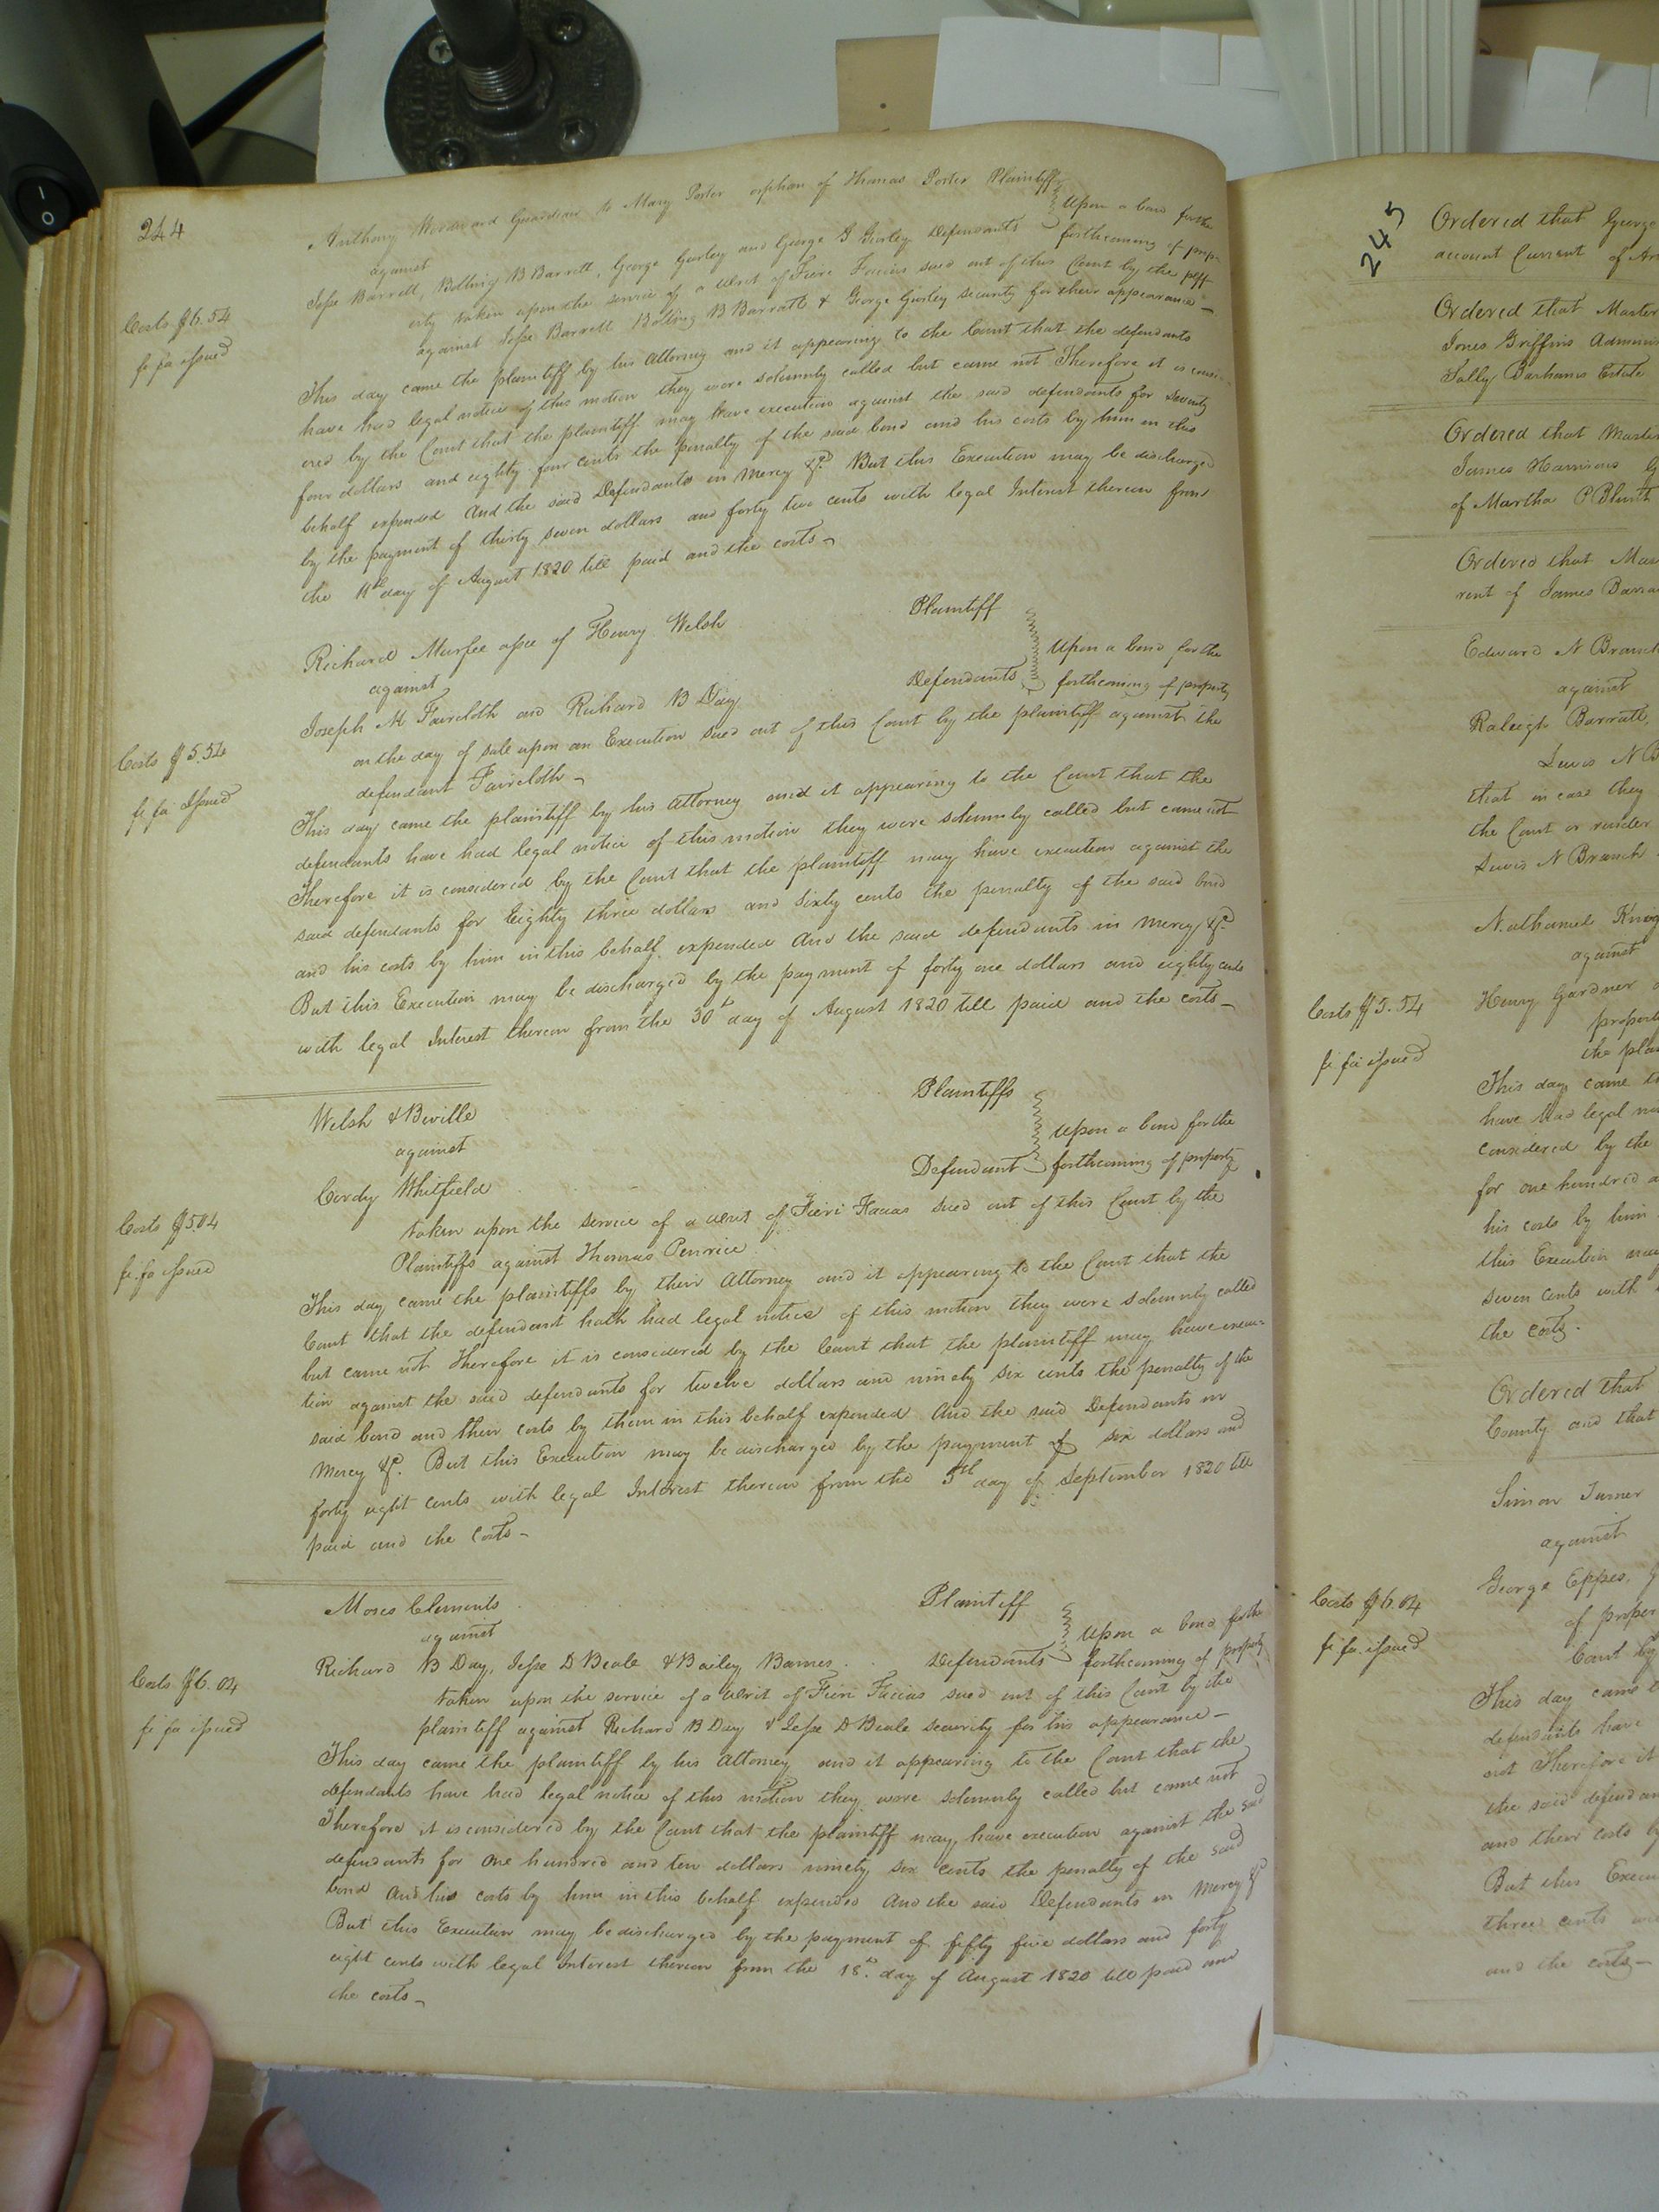 244
Anthony Woodward Guardian to Mary Porter orphan of Thomas Porter Plaintiff
against
Upon a bond for the
Jesse Barrett, Bolling B Barrett, George Gurley and George G Gurley Defendants forthcoming of prop-
erty taken upon the service of a Writ of Fieri Facias sued out of this Court by the plff
against Jesse Barrett Bolling B Barratt & George Gurley security for their appearance
Costs $6.54
fi fa issued
This day came the plaintiff by his Attorney and it appearing to the Court that the defendants
have had legal notice of this motion they were solemnly called but came not Therefore it is consid-
ered by the Court that the plaintiff may have execution against the said defendants for Seventy
four dollars and eighty four cents the penalty of the said bond and his costs by him in this
behalf expended And the said Defendants in Mercy &c. But this Execution may be discharged
by the payment of thirty seven dollars and forty two cents with legal Interest thereon from
the day of August 1820 till paid and the costs –
Richard Murfee assee of Henry Welsh Plaintiff
against
Upon a bond for the
Joseph M Faircloth and Richard B Day Defendants forthcoming of property
on the day of sale upon an Execution sued out of this Court by the plaintiff against the
defendant Faircloth –
Costs $5.54
fi fa Issued
This day came the plaintiff by his Attorney and it appearing to the Court that the
defendants have had legal notice of this motion they were solemnly called but came not
Therefore it is considered by the Court that the plaintiff may have execution against the
said defendants for Eighty three dollars and Sixty cents the penalty of the said bond
and his costs by him in this behalf expended And the said defendants in Mercy &c.
But this Execution may be discharged by the payment of forty one dollars and eighty cents
with legal Interest thereon from the 30th day of August 1820 till paid and the costs –
Welsh & Biville Plaintiffs
against
Upon a bond for the
Cordy Whitfield Defendant forthcoming of property
taken upon the service of a Writ of Fieri Facias sued out of this Court by the
Plaintiffs against Thomas Penrice
Costs $5.04
fi. fa issued
This day came the plaintiffs by their Attorney and it appearing to the Court that the
Court that the defendant hath had legal notice of this motion they were solemnly called
but came not Therefore it is considered by the Court that the plaintiff may have execu-
tion against the said defendants for twelve dollars and ninety six cents the penalty of the
said bond and their costs by them in this behalf expended And the said Defendants in
Mercy &c. But this Execution may be discharged by the payment of six dollars and
forty eight cents with legal Interest thereon from the 5th day of September 1820 till
paid and the Costs –
Moses Clements Plaintiff
against
Upon a bond for the
Richard B Day, Jesse D Beale & Bailey Barnes Defendants forthcoming of property
taken upon the service of a Writ of Fieri Facias sued out of this Court by the
plaintiff against Richard B Day & Jesse D Beale security for his appearance –
Costs $6.04
fi fa issued
This day came the plaintiff by his Attorney and it appearing to the Court that the
defendants have had legal notice of this motion they were solemnly called but came not
Therefore it is considered by the Court that the plaintiff may have execution against the said
defendants for One hundred and ten dollars ninety six cents the penalty of the said
bond And his costs by him in this behalf expended And the said Defendants in Mercy &c
But this Execution may be discharged by the payment of fifty five dollars and forty
eight cents with legal Interest thereon from the 18th. day of August 1820 till paid and
the costs –
245
Ordered that George
account Current of
Ordered that Master
Jones Griffins Adminis
Sally Barhams Estate
Ordered that Master
James Harrisons
of Martha P Blunt
Ordered that Mas
rent of James Barra
Edward N Branch
against
Raleigh Barratt,
Lewis N B
that in case they
the Court or render
Lewis N Branch
Nathaniel Knig
against
Henry Gardner
property
the pla
Costs $5.54
fi. fa issued
This day came t
have had legal no
considered by the
for one hundred a
his costs by him
this Execution may
seven cents with
the costs.
Ordered that
County and that
Simon Turner
against
George Eppes,
of proper
Court by
Costs $6.04
fi fa. issued
This day came t
defendants have
not Therefore it
the said defendan
and their costs by
But this Execu
three cents
and the costs –